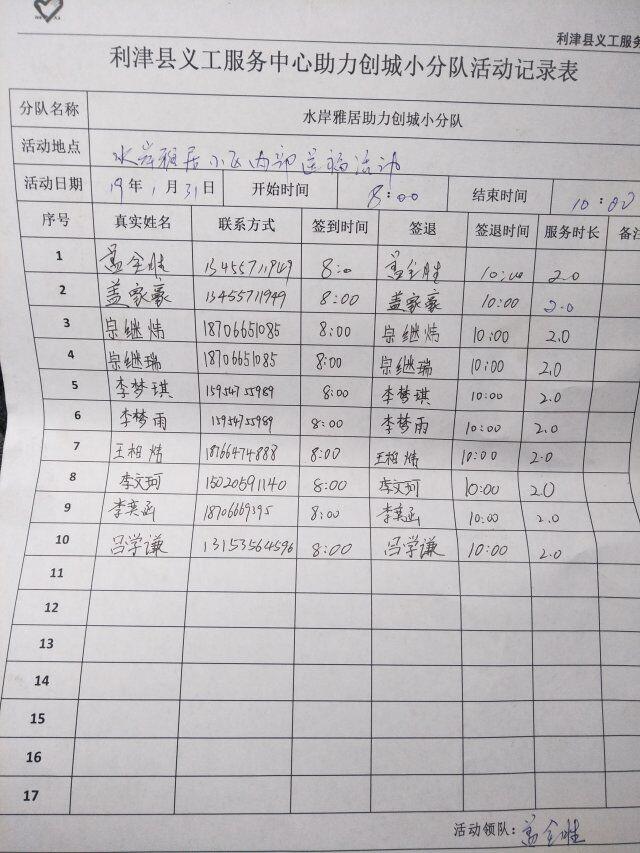 利津县义工服务
利津县义工服务中心助力创城小分队活动记录表
分队名称 水岸雅居助力创城小分队
活动地点 水岸雅居小区内部送福活动
活动日期 19年1月31日 开始时间 8:00 结束时间 10:00
序号 真实姓名 联系方式 签到时间 签退 签退时间 服务时长 备注
1 盖全胜 13455711949 8:0 盖全胜 10:00 2.0
2 盖家豪 13455711949 8:00 盖家豪 10:00 2.0
3 宗继炜 18706651085 8:00 宗继炜 10:00 2.0
4 宗继瑞 18706651085 8:00 宗继瑞 10:00 2.0
5 李梦琪 15954755989 8:00 李梦琪 10:00 2.0
6 李梦雨 15954755989 8:00 李梦雨 10:00 2.0
7 王相炜 18766474888 8:00 王相炜 10:00 2.0
8 李文珂 15020591140 8:00 李文珂 10:00 2.0
9 李奕函 18706669395 8:00 李奕函 10:00 2.0
10 吕学谦 13153564596 8:00 吕学谦 10:00 2.0
11
12
13
14
15
16
17
活动领队：盖全胜